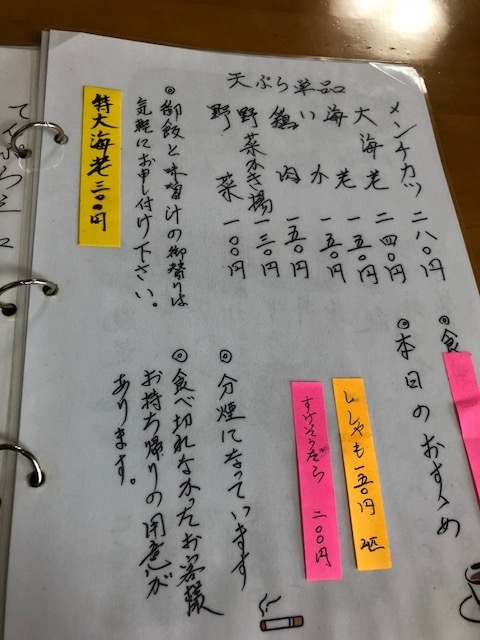 天ぷら単品
メンチカツ 二八〇円
大海老 二四〇円
海老 一五〇円
いか 一五〇円
鶏肉 一五〇円
野菜かき揚 一三〇円
野菜 一〇〇円
◎御飯と味噌汁の御替りは
気軽にお申し付け下さい。
特大海老三〇〇円
◎食
◎本日のおすゝめ
ししゃも一五〇円 2匹
すけそうだら 二〇〇円
◎分煙になっています
◎食べ切れなかったお客様
お持ち帰りの用意が
あります。